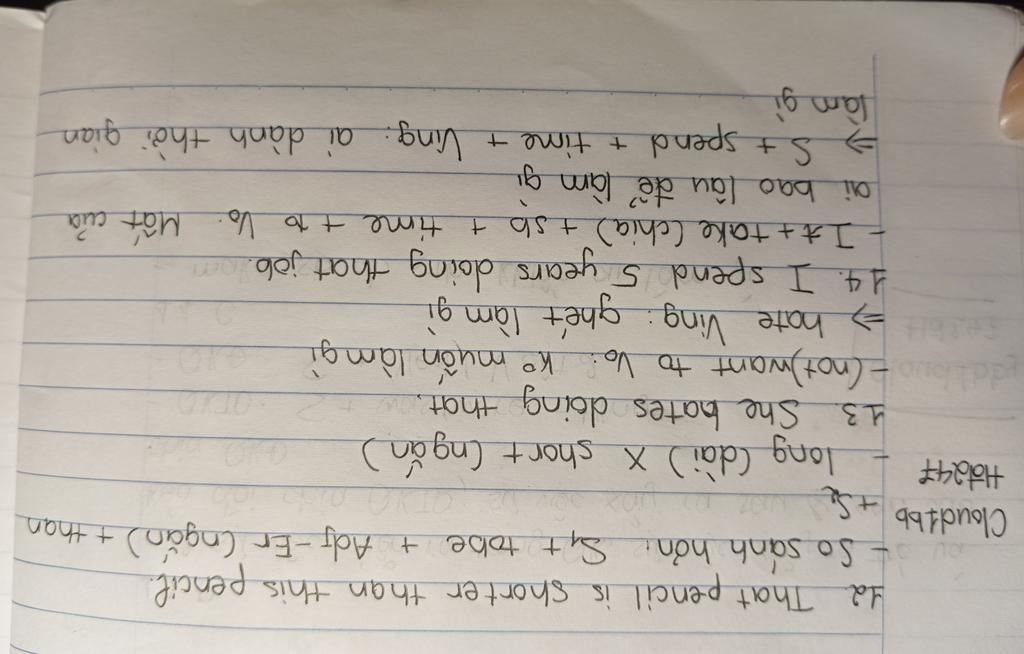 12. That pencil is shorter than this pencil.
- So sánh hơn: S1 + tobe + Adj-Er (ngắn) + than
+ S2
- long (dài) X short (ngắn)
13. She hates doing that.
- (not) want to Vo: kº muốn làm gì
=> hate Ving: ghét làm gì
14. I spend 5 years doing that job.
- It + take (chia) + sb + time + to Vo: Mất của
ai bao lâu để làm gì
=> S + spend + time + Ving: ai dành thời gian
làm gì
Cloud1bb